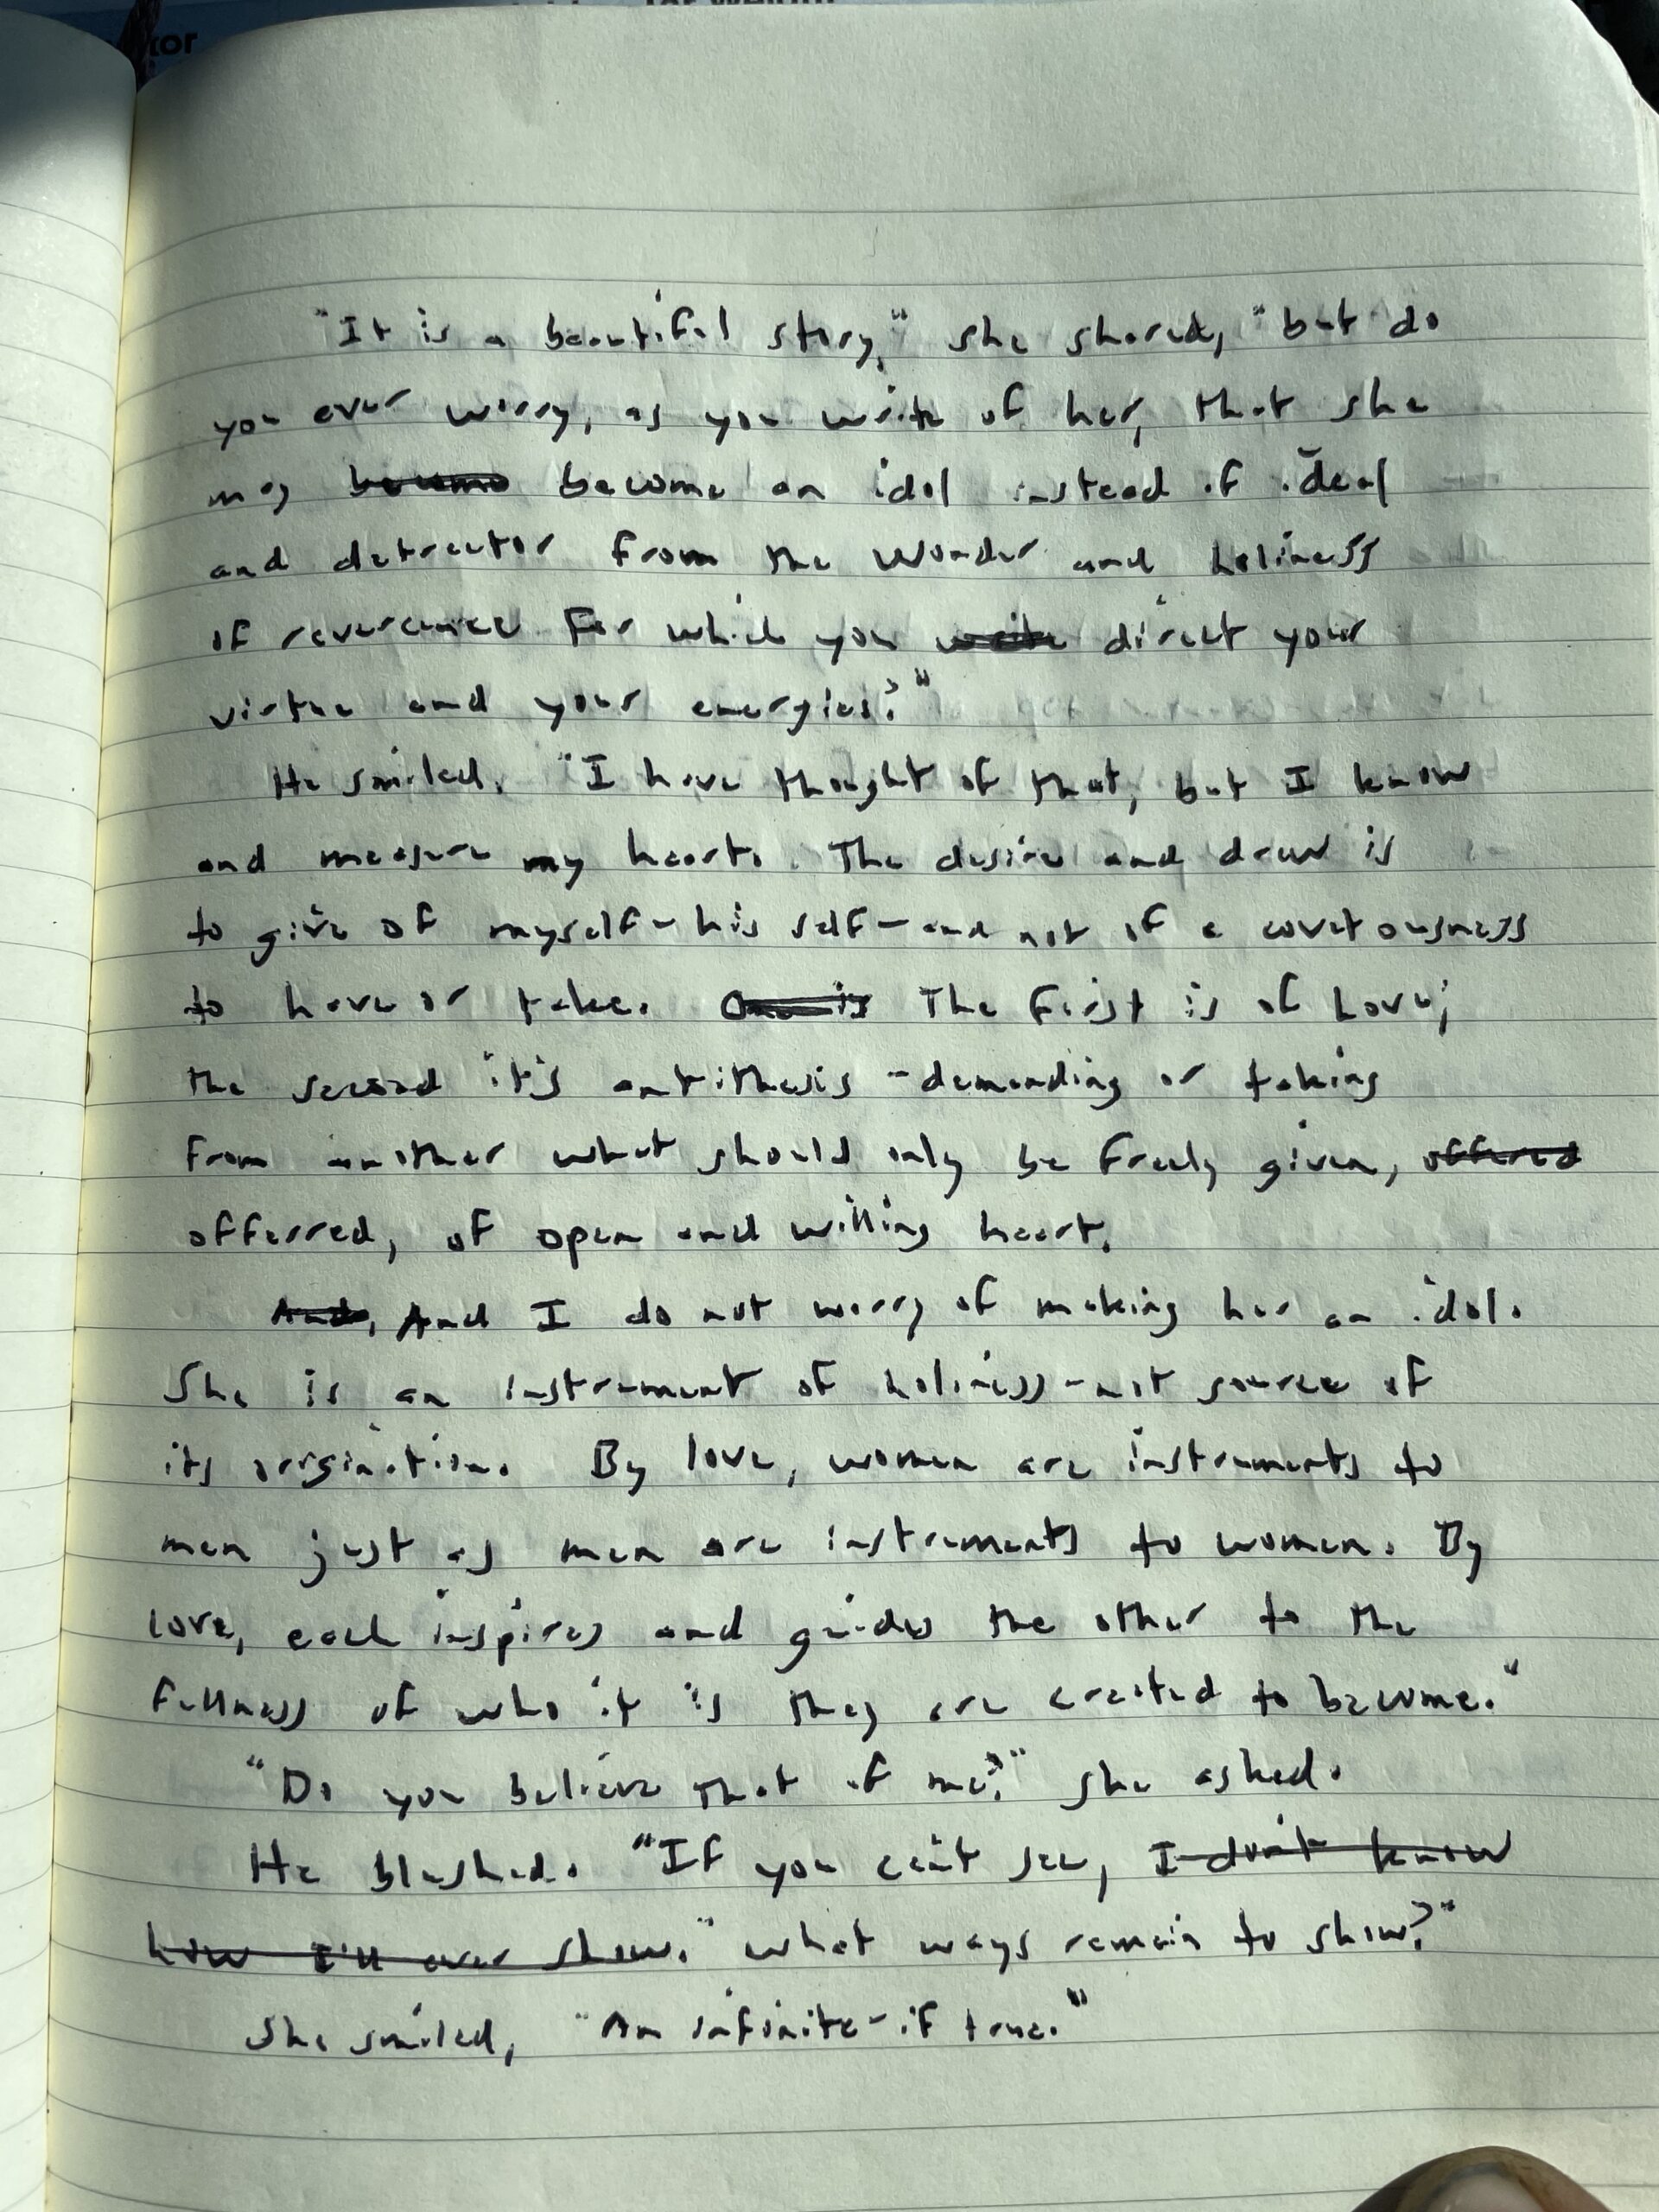 xor
"It is a beautiful story," she shared, "but do
you ever worry, as you write of her, that she
may ~~become~~ become an idol instead of ideal
and detractor from the wonder and holiness
of reverence for which you ~~write~~ direct your
virtue and your energies?"
He smiled. "I have thought of that, but I know
and measure my heart. The desire and draw is
to give of myself - his self - and not of a covetousness
to have or take. ~~One is~~ The first is of Love;
the second it's antithesis - demanding or taking
from another what should only be freely given, ~~offered~~
offerred, of open and willing heart.
~~And,~~ And I do not worry of making her an idol.
She is an instrument of holiness - not source of
its origination. By love, women are instruments to
men just as men are instruments to women. By
love, each inspires and guides the other to the
fullness of who it is they are created to become."
"Do you believe that of me?" she asked.
He blushed. "If you can't see, ~~I don't know~~
~~how I'll ever show."~~ what ways remain to show?"
She smiled, "An infinite - if true."